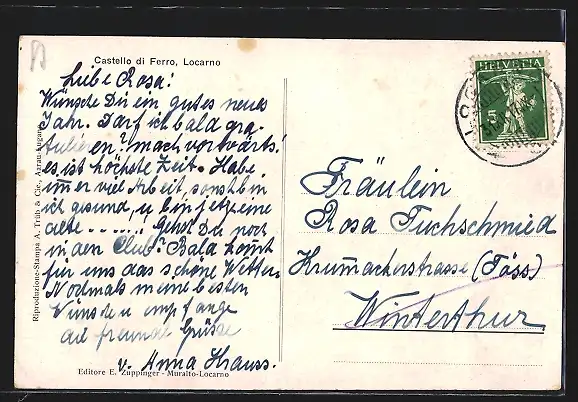 Castello di Ferro, Locarno
Liebe Rosa!
Wünsche Dir ein gutes neues
Jahr. Darf ich bald gra-
tulieren? mach vorwärts!
es ist höchste Zeit. Habe
immer viel Arbeit, sonst bin
ich gesund, u bin jetz eine
alte ........ Gehst Du noch
in den Club? Bald kommt
für uns das schöne Witter-
Nochmals meine besten
Wünsche u empfange
die freundl Grüsse
v. Anna Krauss.
Editore E. Zuppinger - Muralto-Locarno
Riproduzione-Stampa A. Trüb & Cie., Aarau-Lugano
HELVETIA
5
LOCARNO
Fräulein
Rosa Fuchschmied
Krumackerstrasse (Töss)
Winterthur